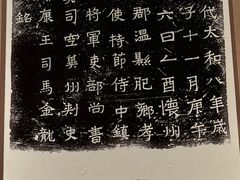 代太和八年歲
子十一月庚午
六日乙酉懷州
郡溫縣肥鄉孝
使持節侍中鎮
將軍吏部尚書
司空冀州刺史
康王司馬金龍
銘